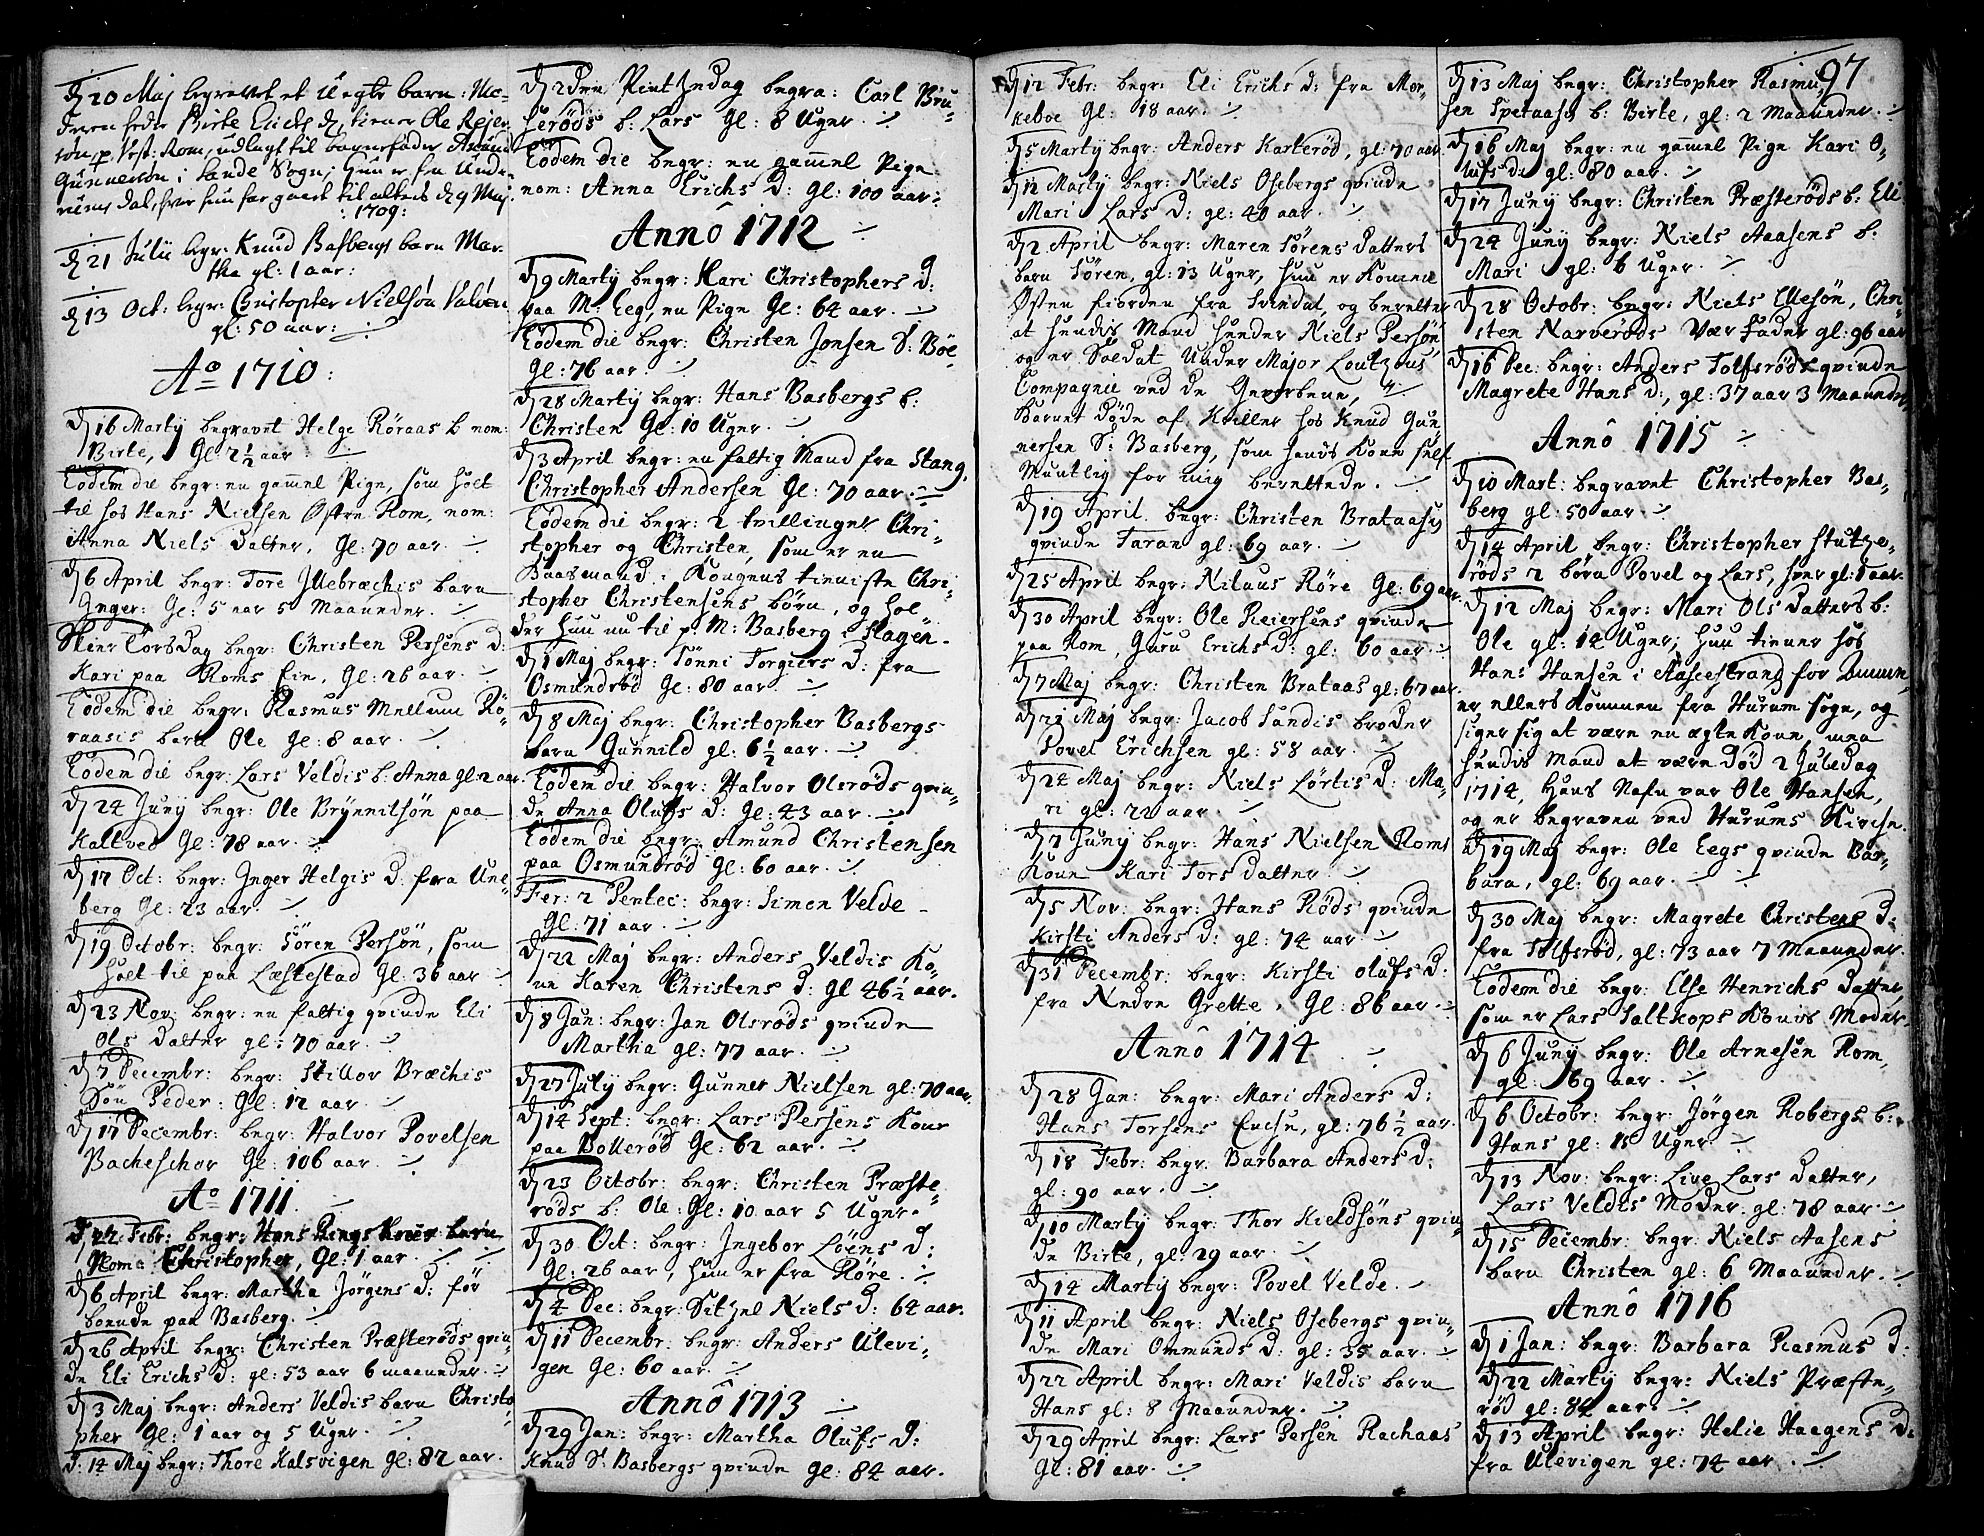 d 20 Maj begravet et Uegte barn: Mo-
deren heder Birte Erichs d, tiener Ole Rejer-
søn p. Vest: Rom, udlagt til barnefader Amund
Gunnersøn i Sande Sogn, hun er fra Unde-
rums dal, hvor hun har gaaet til alters d 9 Maj
:1709:
d 21 Julii begr: Knud Basbergs barn Mar-
tha gl: 1 aar:
d 13 Oct: begr: Christopher Nielsøn Valøen
gl: 50 aar:
Ao 1710:
d 16 Marty begravet Helge Röraas b nom:
Birte, Gl: 2½ aar
Eodem die begr: en gamel Pige, som holt
til hos Hans Nielsen Østre Rom, nom:
Anna Niels datter, Gl: 70 aar.
d 6 April begr: Tore Illebræchis barn
Inger: Gl: 5 aar 5 Maaneder.
Skier Torsdag begr: Christen Persens d:
Kari paa Roms Eie, Gl: 26 aar.
Eodem die begr: Rasmus Mellum Rö-
raasis barn Ole Gl: 8 aar.
Eodem die begr: Lars Veldis b: Anna gl: 2 aar
d 24 Juny begr: Ole Brynnilsön paa
Kaltved Gl: 78 aar.
d 17 Oct: begr: Inger Helgis d: fra Une-
berg Gl: 23 aar.
d 19 Octobr: begr: Sören Persön, som
holt til paa Læstestad Gl: 36 aar
d 23 Nov: begr: en fattig qvinde Eli
Ols datter gl: 70 aar.
d 7 Decembr: begr: Stillor Bræchis
Søn Peder: Gl: 12 aar.
d 17 Decembr: begr: Halvor Povelsen
Bacheschor Gl: 106 aar.
Ao 1711.
d 22 Febr: begr: Hans Rings barn
Nom: Christopher, Gl: 1 aar.
d 6 April begr: Martha Jörgens d: før
boende paa Basberg.
d 26 April begr: Christen Præsterøds qvin-
de Eli Erichs d: gl: 53 aar 6 maaneder.
d 3 Maj begr: Anders Veldis barn Christo-
pher Gl: 1 aar og 5 Uger.
d: 14 Maj begr: Thore Kalsvigen Gl: 82 aar.
d 2den Pintzedag begra: Carl Bru-
serøds b: Lars Gl: 8 Uger.
Eodem die begr: en gammel Pige
nom: Anna Erichs d: Gl: 100 aar.
Annô 1712
d 9 Marty begr: Kari Christophers d:
paa M: Eeg, en Pige Gl: 64 aar.
Eodem die begr: Christen Jonsen S: Böe
Gl: 76 aar.
d 28 Marty begr: Hans Basbergs b:
Christen Gl: 10 Uger.
d 3 April begr: en fattig Mand fra Stang,
Christopher Andersen Gl: 70 aar.
Eodem die begr: 2 tvillinger Chri-
stopher og Christen, som er en
Baasmand i Kongens tieniste Chri-
stopher Christensens börn, og hol-
der hun nu til p: M: Basberg i Slagen.
d 1 Maj begr: Tönni Torgiers d: fra
Osmundröd Gl: 80 aar.
d 8 Maj begr: Christopher Basbergs
barn Gunnild gl: 6½ aar.
Eodem die begr: Halvor Olsröds qvin-
de Anna Olufs d: Gl: 43 aar.
Eodem die begr: Amund Christensen
paa Osmundröd Gl: 60 aar.
Fer: 2 Pentec: begr: Simen Velde
Gl: 71 aar.
d 22 Maj begr: Anders Veldis Ko-
ne Karen Christens d: gl 46½ aar.
d 8 Jun: begr: Jan Olsröds qvinde
Martha gl: 77 aar.
d 27 July begr: Gunner Nielsen gl: 70 aar.
d 14 Sept: begr: Lars Persens Kone
paa Bollerød Gl: 62 aar.
d 23 Octobr: begr: Christen Præste-
röds b: Ole: Gl: 10 aar 5 Uger.
d 30 Oct: begr: Ingebor Löens d:
Gl: 26 aar, hun er fra Röre.
d 4 Dec: begr: Sitzel Niels d: 64 aar.
d 11 Decembr: begr: Anders Ulevi-
gen Gl: 60 aar.
Annô 1713
d 29 Jan: begr: Martha Olufs d:
Knud S: Basbergs qvinde Gl: 84 aar.
d 12 Febr: begr: Eli Erichs d: fra Mor-
keboe Gl: 18 aar.
d 5 Marty begr: Anders Karterød, gl: 70 aar
d 12 Marty begr: Niels Osebergs qvinde
Mari Lars d: gl: 40 aar.
d 2 April begr: Maren Sörens datters
barn Sören, gl: 13 Uger, hun er Kommen
Østen fiorden fra Svindal, og beretter
at hendis Mand heeder Niels Persön
og er Soldat Under Major Loutzous
Compagnie ved de Geworbene,
Barnet döde af Kriller hos Knud Gun-
nersen S: Basberg, som hands Kone self
Muntlig for mig berettede.
d 19 April begr: Christen Brataases
qvinde Taran gl: 69 aar.
d 25 April begr: Nilaus Röre Gl: 69 aar.
d 30 April begr: Ole Reiersens qvinde
paa Rom, Guru Erichs d: gl: 60 aar.
d 7 Maj begr: Christen Brataas gl: 67 aar.
d 21 Maj begr: Jacob Sandis broder
Povel Erichsen gl: 58 aar.
d 24 Maj begr: Niels Lörtis d: Ma-
ri gl: 22 aar.
d 7 Juny begr: Hans Nielsen Roms
Kone Kari Tors datter
d 5 Nov: begr: Hans Röds qvinde
Kirsti Anders d: gl: 74 aar.
d 31 Decembr: begr: Kirsti Olufs d:
fra Nedre Grette, Gl: 86 aar.
Annô 1714
d 28 Jan: begr: Mari Anders d:
Hans Torsens Encke, gl: 76½ aar.
d 18 Febr: begr: Barbara Anders d:
gl: 90 aar.
d 10 Marty begr: Thor Kieldsöns qvin-
de Birte, gl: 29 aar.
d 14 Marty begr: Povel Velde.
d 11 April begr: Niels Osebergs qvin-
de Mari Ommunds d: gl: 35 aar.
d 22 April begr: Mari Veldis barn
Hans gl: 8 Maaneder.
d 29 April begr: Lars Persen Rachaas
Gl: 81 aar.
97
d 13 Maj begr: Christopher Rasmu-
sen Spetaas b: Birte, gl: 2 Maaneder.
d 16 Maj begr: en gammel Pige Kari O-
lufs d: gl: 80 aar.
d 17 Juny begr: Christen Præsteröds b: Eli
d 24 Juny begr: Niels Aasens b:
Mari gl: 6 Uger.
d 28 Octobr: begr: Niels Ellesön, Chri-
sten Narveröds Vær fader gl: 96 aar
d 16 Dec: begr: Anders Tolfsröds qvinde
Magrete Hans d:, gl: 37 aar 3 Maaneder
Annô 1715
d 10 Mart: begravet Christopher Bas-
berg gl: 50 aar.
d 14 April begr: Christopher Stutze-
röds 2 börn Povel og Lars, hver gl: 1 aar.
d 12 Maj begr: Mari Ols datters b:
Ole gl: 14 Uger; hun tiener hos
Hans Hansen i Aascestrand for Amme,
er ellers Kommen fra Hurum sogn, og
siger sig at være en ægte Kone, men
hendis Mand at være död 2 Juledag
1714, Hans Nafn var Ole Hansen,
og er begraven ved Hurums Kirche.
d 19 Maj begr: Ole Eegs qvinde Bar-
bara, gl: 69 aar.
d 30 Maj begr: Magrete Christens d:
fra Tolfsröd, gl: 73 aar 7 Maaneder.
Eodem die begr: Else Henrichs datter
som er Lars Saltkops Kones Moder.
d 6 Juny begr: Ole Arnesen Rom,
gl: 69 aar.
d 6 Octobr: begr: Jörgen Robergs b:
Hans gl: 15 Uger.
d 13 Nov: begr: Live Lars datter,
Lars Veldis Moder gl: 78 aar.
d 15 Decembr: begr: Niels Aasens
barn Christen gl: 6 Maaneder.
Annô 1716
d 1 Jan: begr: Barbara Rasmus d:
d 22 Marty begr: Niels Præste-
röd gl: 84 aar.
d 13 April begr: Helie Haagens d:
fra Ulevigen gl: 74 aar.